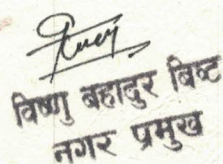 विष्णु बहादुर बिष्ट
नगर प्रमुख